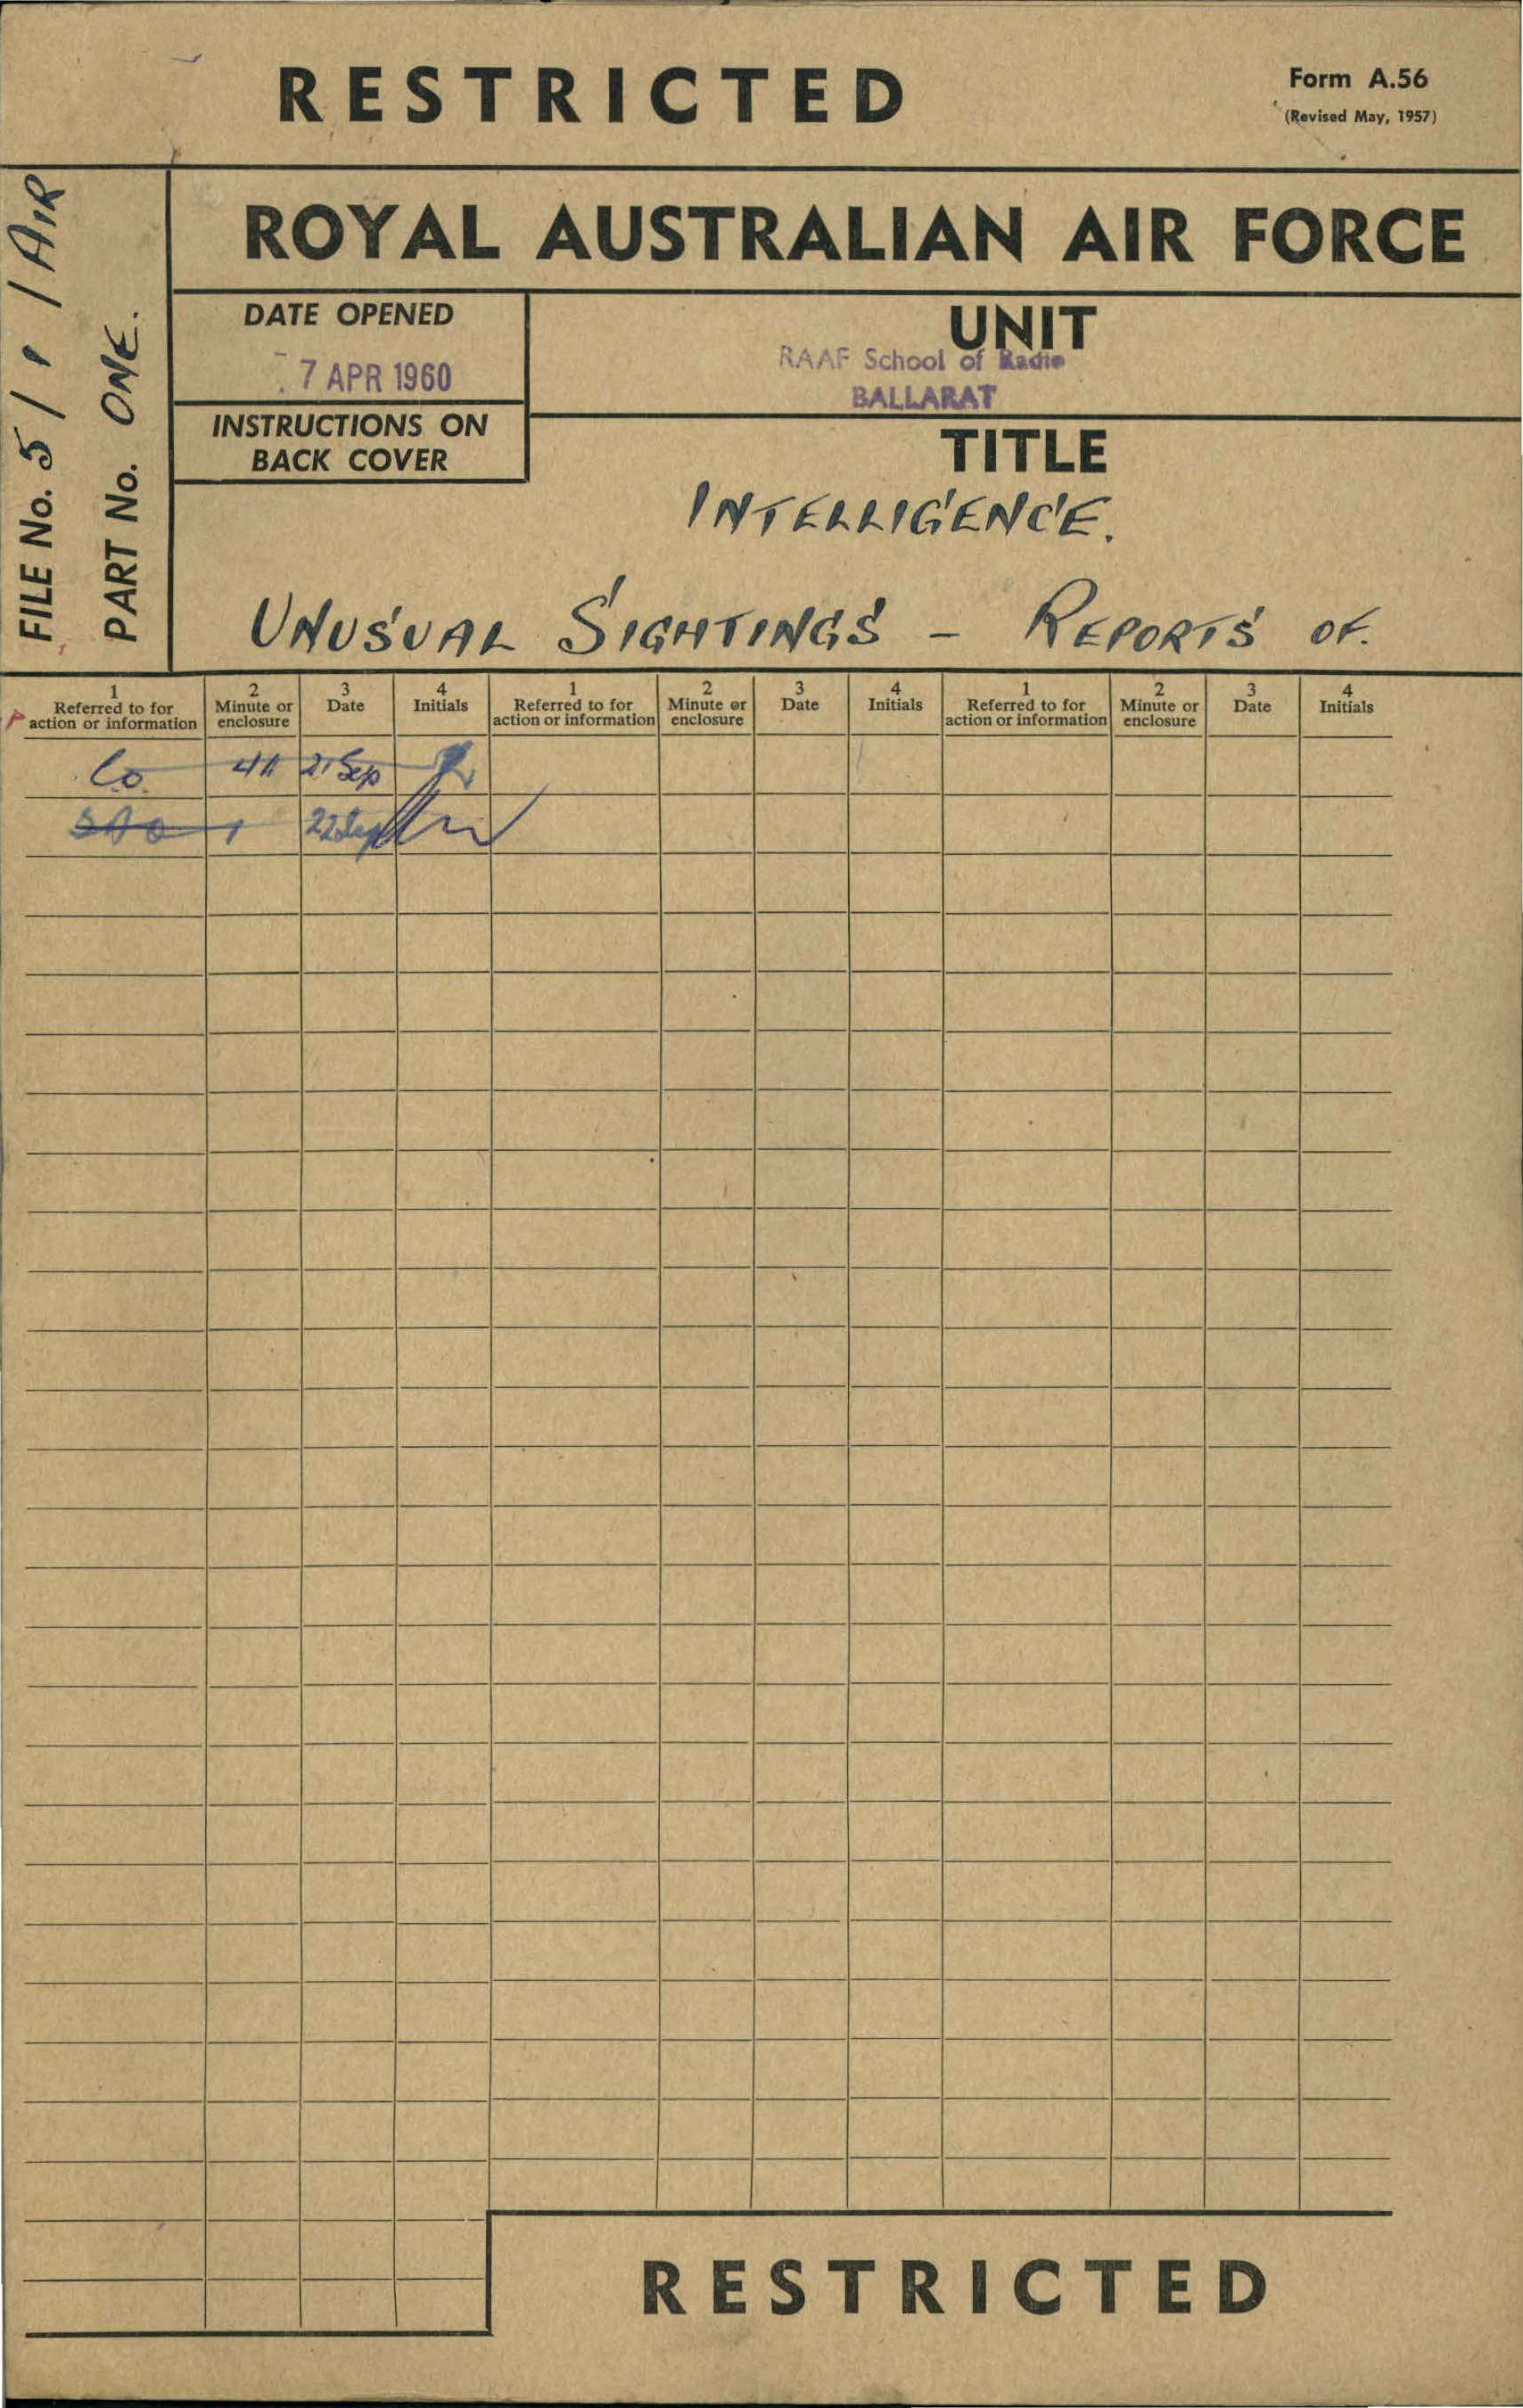 RESTRICTED
Form A.56
(Revised May, 1957)
FILE No. 5/1/AIR
PART No. ONE.
ROYAL AUSTRALIAN AIR FORCE
DATE OPENED
7 APR 1960
INSTRUCTIONS ON
BACK COVER
UNIT
RAAF School of Radio
BALLARAT
TITLE
INTELLIGENCE.
UNUSUAL SIGHTINGS - REPORTS OF.
1 2 3 4 1 2 3 4 1 2 3 4
Referred to for Minute or Date Initials Referred to for Minute or Date Initials Referred to for Minute or Date Initials
action or information enclosure action or information enclosure action or information enclosure
CO. 21 Sep
22 Sep
RESTRICTED